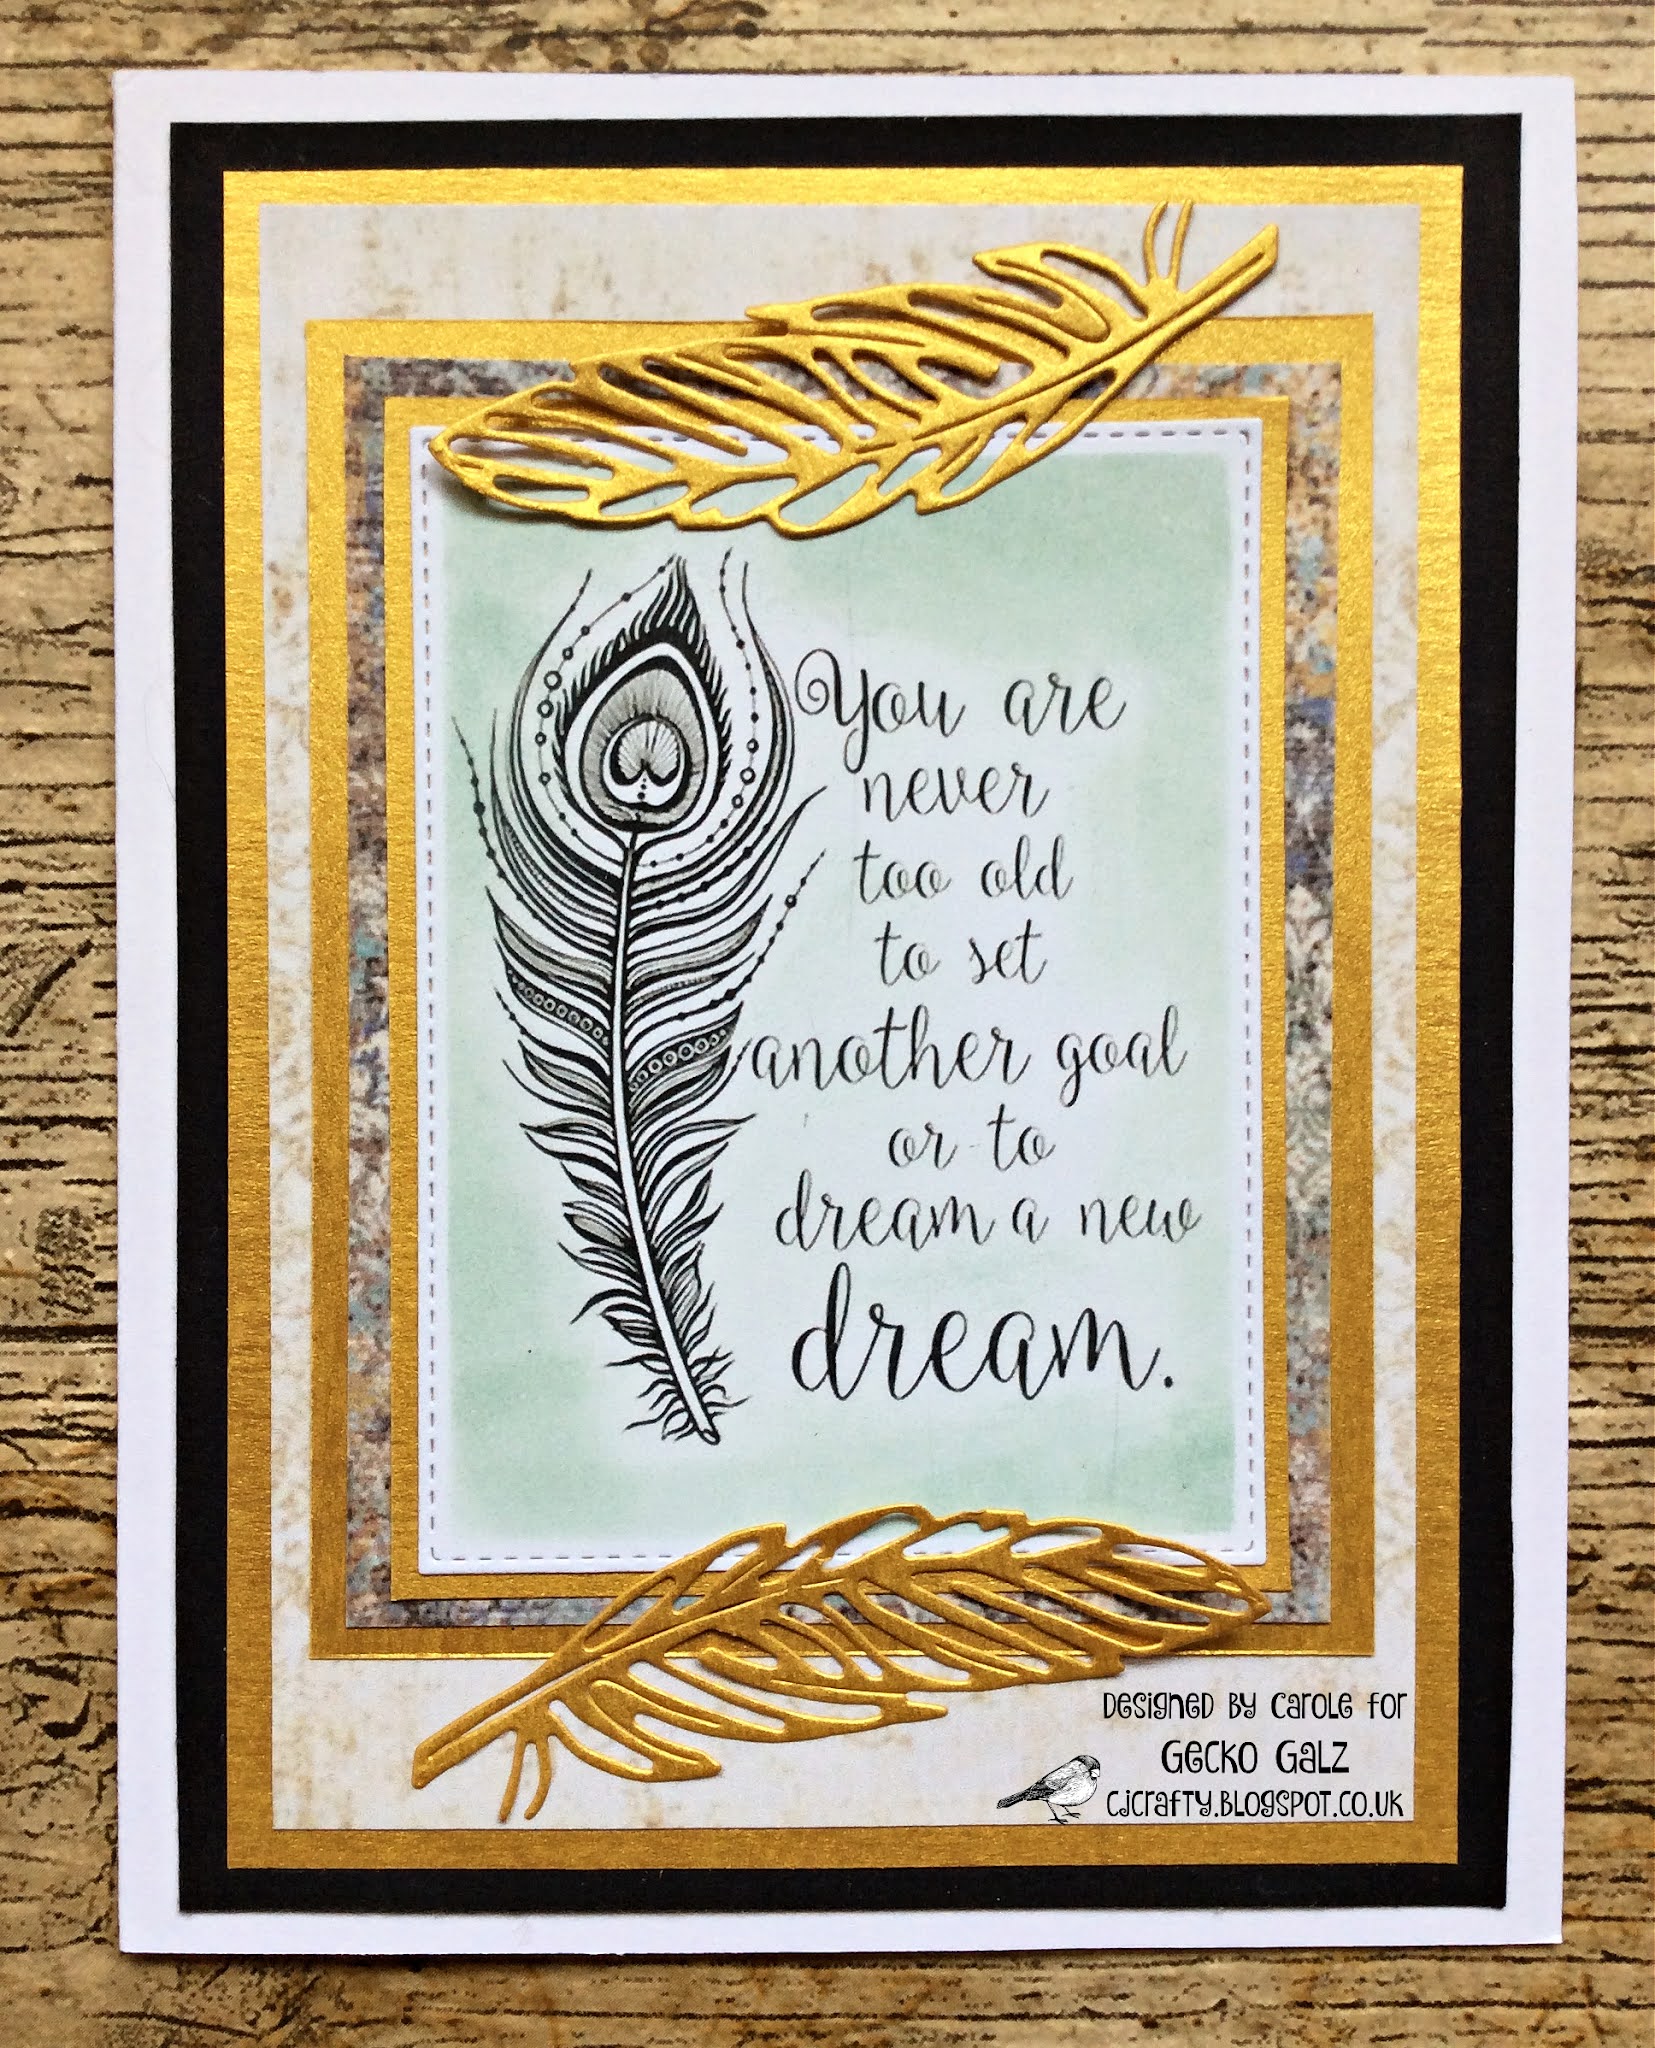 You are
never
too old
to set
another goal
or to
dream a new
dream.
Designed by Carole for
Gecko Galz
cjcrafty.blogspot.co.uk